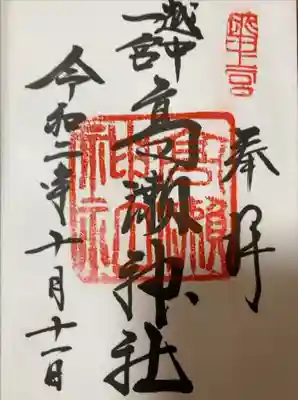 奉拝
越中
一宮
高瀬神社
高瀬神社
令和二年十月十一日